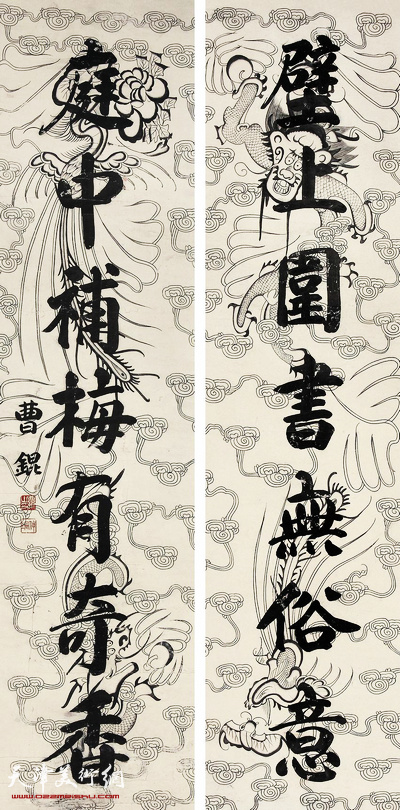 壁上圖書無俗意
庭中補梅有奇香
曹錕
天津美術網
www.022meishu.com